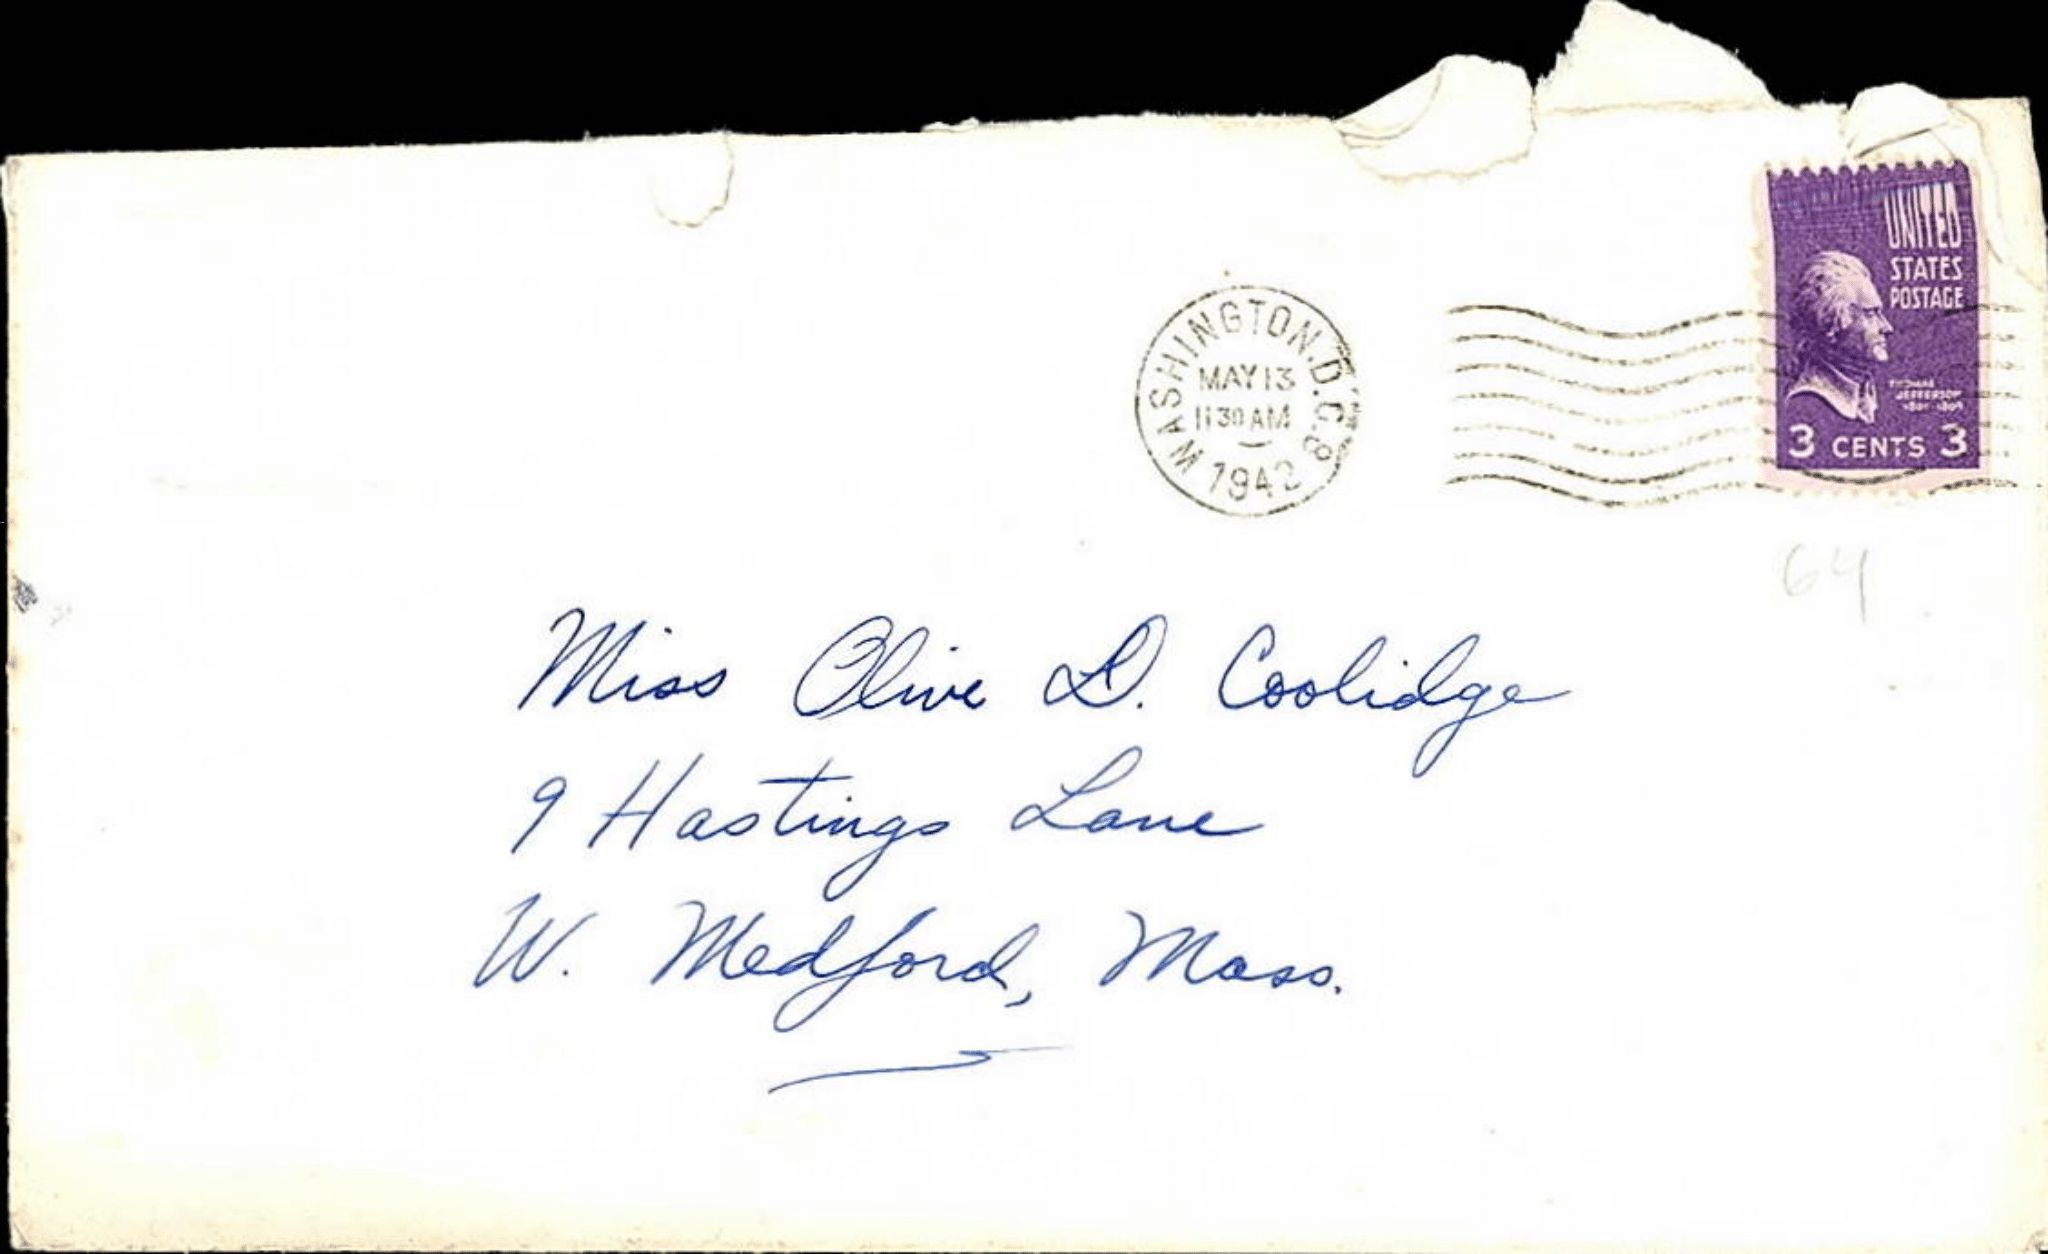 WASHINGTON, D.C. 8
MAY 13
11 30 AM
1942
UNITED
STATES
POSTAGE
THOMAS
JEFFERSON
1801-1809
3 CENTS 3
64
Miss Olive D. Coolidge
9 Hastings Lane
W. Medford, Mass.